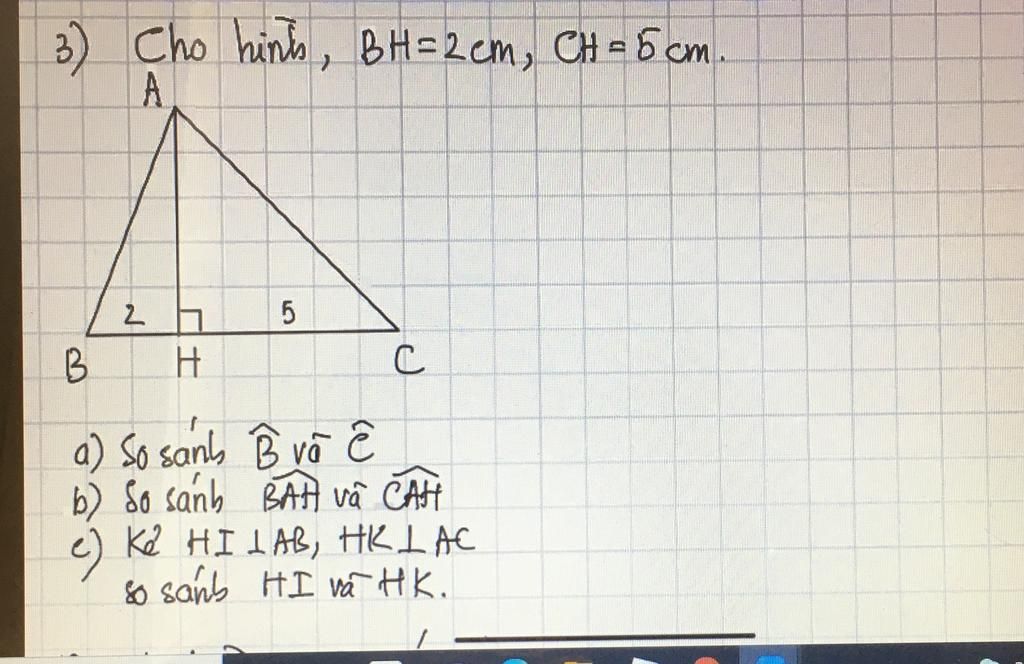 3) Cho hình, BH = 2cm, CH = 5cm.
A
2
5
B
H
C
a) So sánh B̂ và Ĉ
b) So sánh BAH và CAH
c) Kẻ HI ⊥ AB, HK ⊥ AC
so sánh HI và HK.